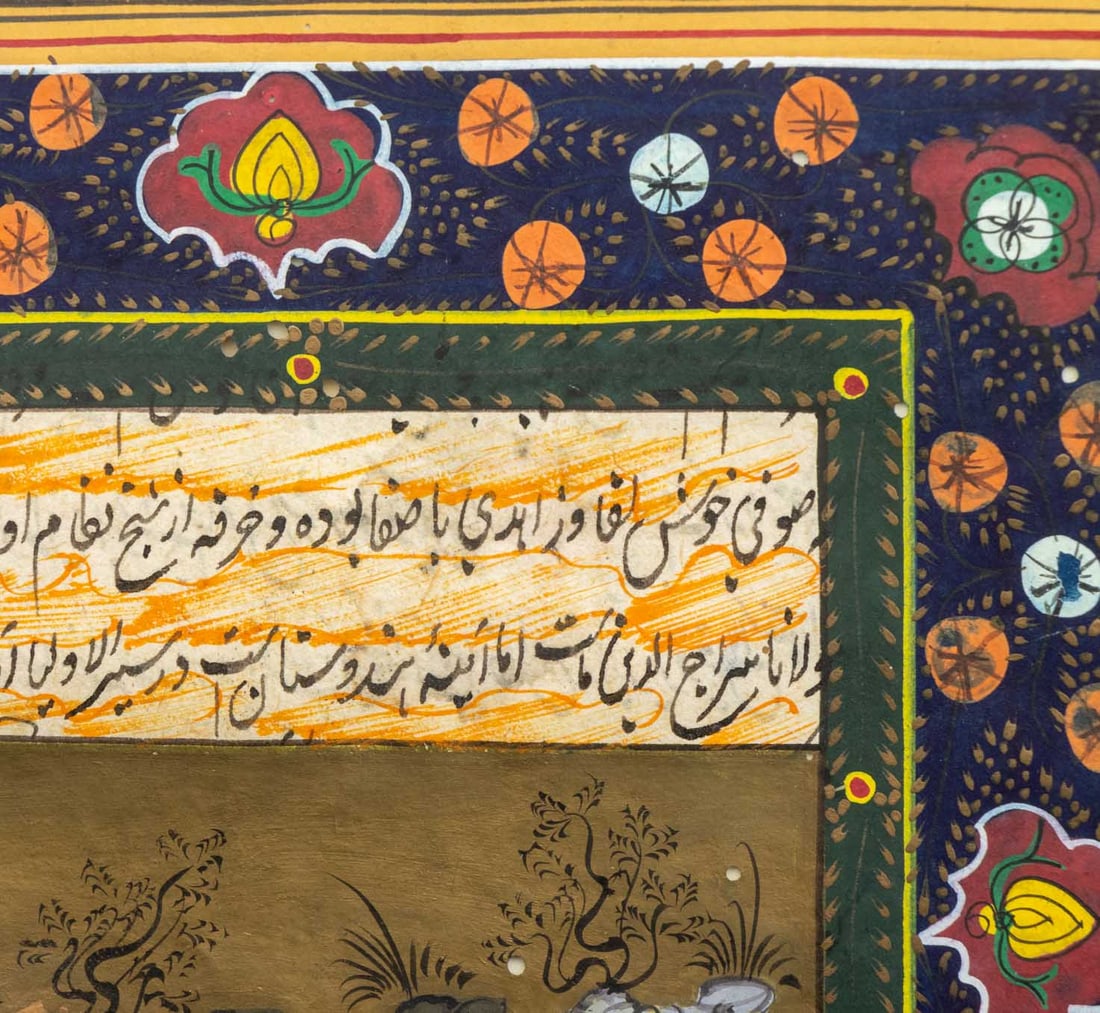 صوفی خوش لقا و زاهدی با صفا بوده و خرقه از شیخ نظام او
ولانا سراج الدین مات اما آیینهٔ هندوستانست در سیر الاولیا آ